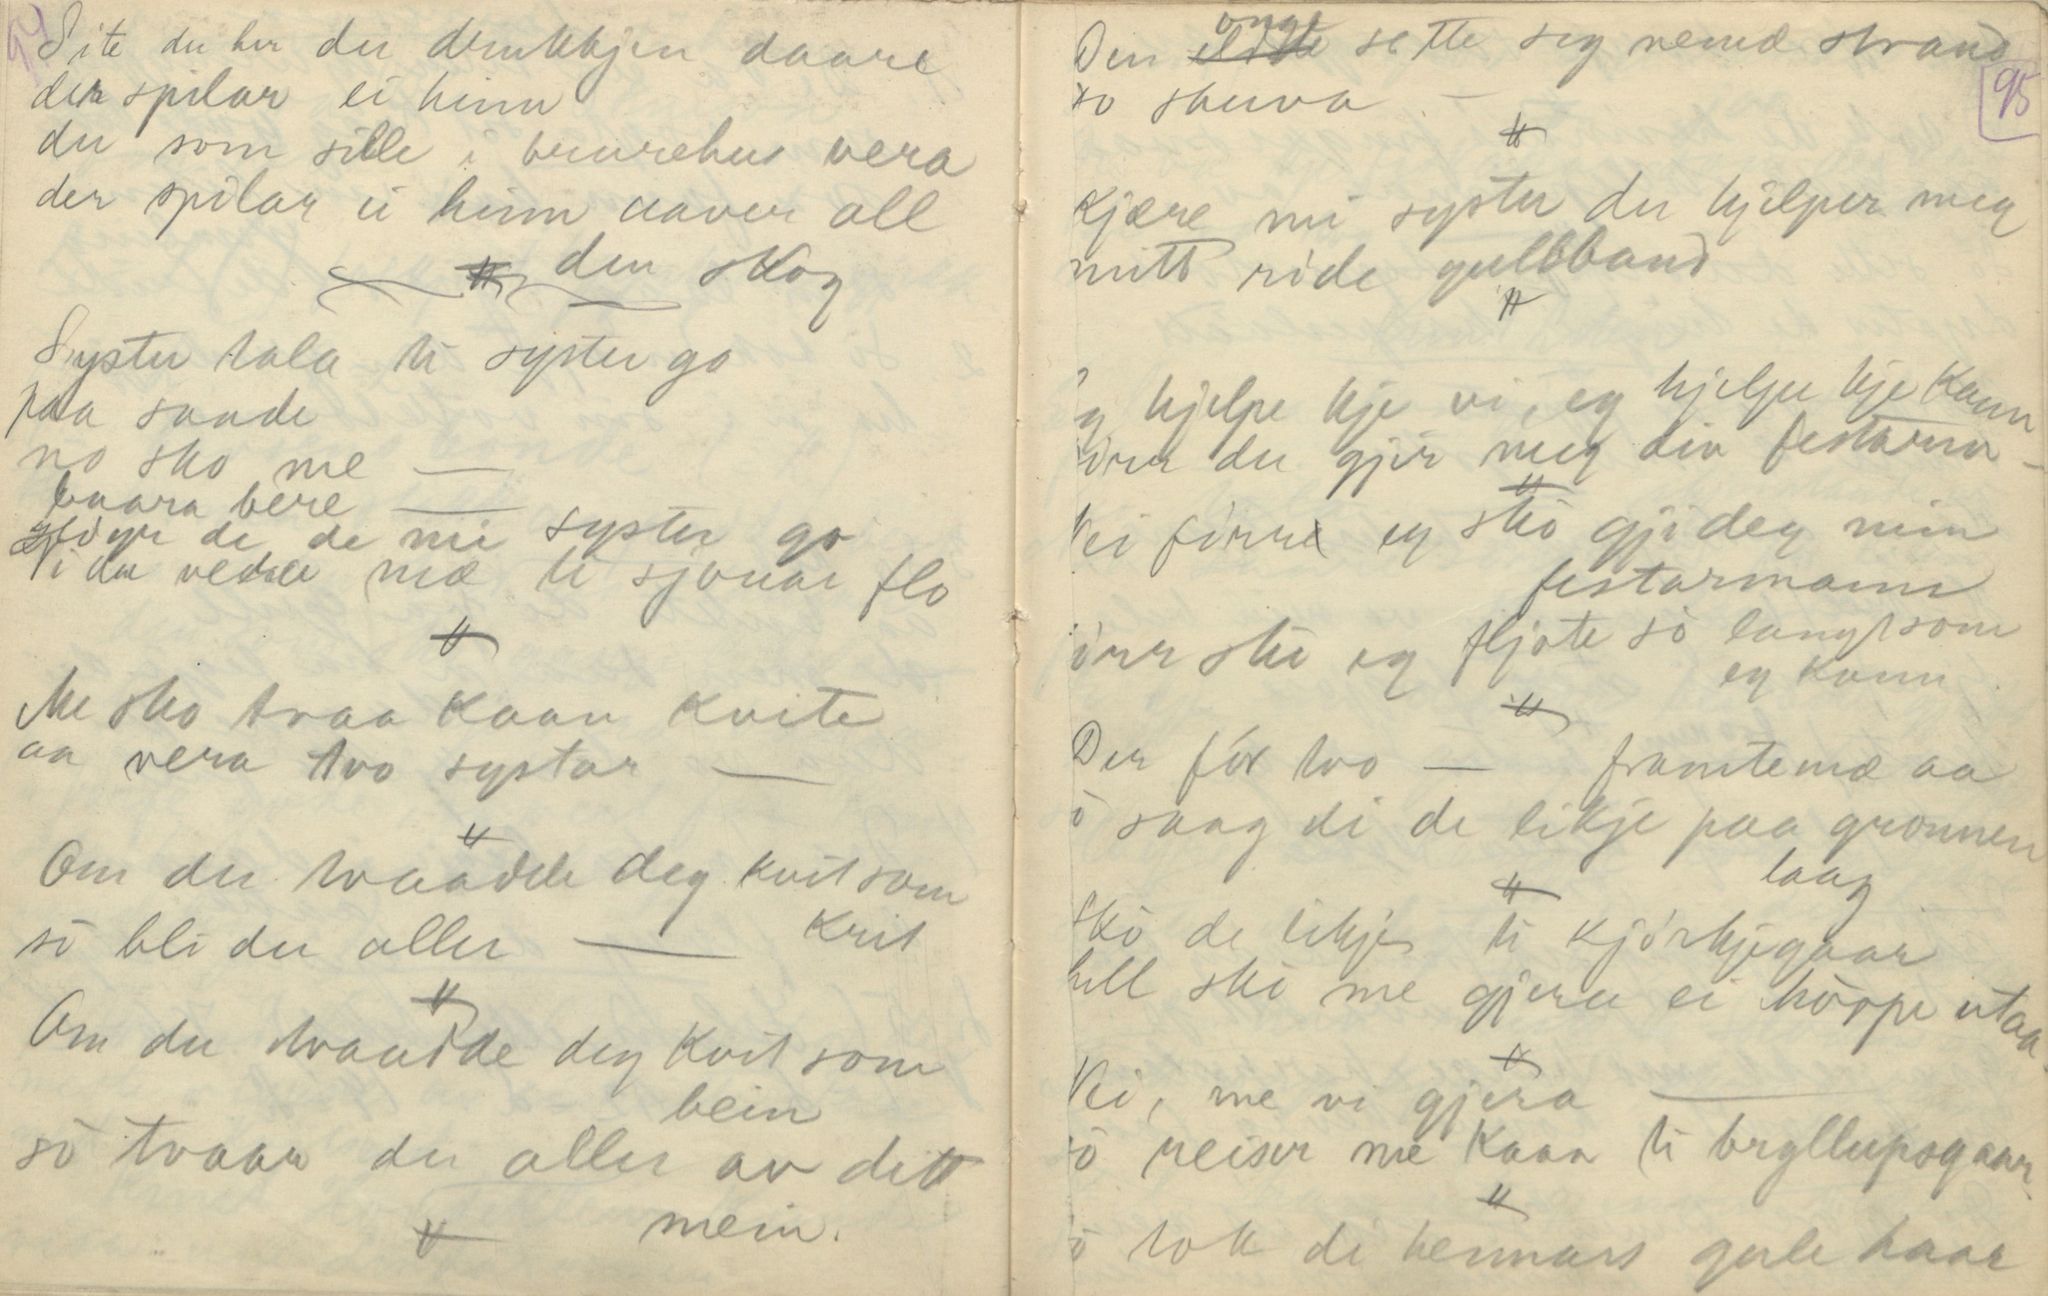 94
Site du her du drukkjen daare
der spilar ei hinn
du som sille i brurehus vera
der spilar ei hinn aaver all
den skog
Syster tala ti syster go
paa sande
no sko me —
baara bere —
de de mi syster go
Vi du mæ ti sjøuar flo
Me sko tvaa kaan kvite
aa vera tvo systar —
Om du tvaadde deg kvit som
krit
sò bli du aller —
Om du tvaadde deg kvit som
bein
sò tvaar du aller av ditt
mein.
95
Den onge sette seg nemæ strand
so skuva —
Kjære mi syster du hjelper meg
mitt ride gullband
hjelpe kje vi, eg hjelpe kje kann
du gjer meg din festarm —
Nei förre eg skò gji deg min
festarmann
förr ski eg fljote sò langt som
eg kann
Der för tvo — framtemæ aa
ò saag di de likje paa gronnen
laag
Skò de likje ti kjörkjegaar
hell ski me gjera ei hörpe utaa
Nei, me vi gjera —
sò reiser me kaan ti bryllupsgaar
ò tok di hennars gule haar